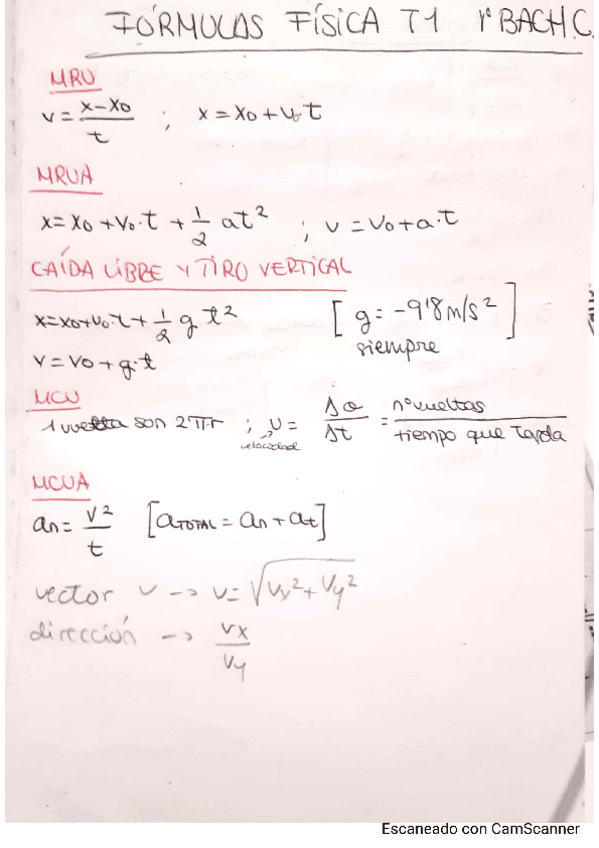 FÓRMULAS FÍSICA T1 1º BACH C.
MRU
v = x-x0/t ; x = x0 + v0·t
MRUA
x = x0 + v0·t + 1/2 at² ; v = v0 + a·t
CAÍDA LIBRE Y TIRO VERTICAL
x = x0 + v0·t + 1/2 g t² [g = -9'8 m/s²]
siempre
v = v0 + g·t
MCU
1 vuelta son 2πr ; v = Δθ/Δt = nº vueltas/tiempo que tarda
velocidad
MCUA
an = v²/t [aTOTAL = an + at]
vector v -> v = √vx² + vy²
dirección -> vx/vy
Escaneado con CamScanner